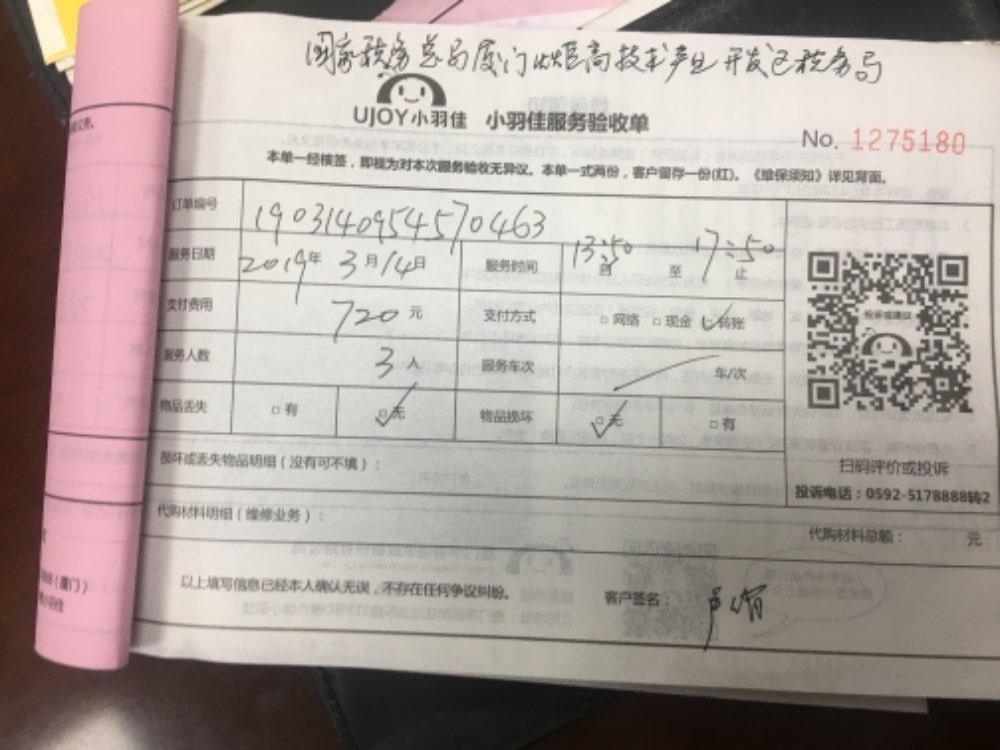 国家税务总局厦门火炬高技术产业开发区税务局
UJOY小羽佳 小羽佳服务验收单
No. 1275180
本单一经核签，即视为对本次服务验收无异议。本单一式两份，客户留存一份(红)。《维保须知》详见背面。
订单编号 190314095454570463
服务日期 2019年 3月14日 服务时间 13:50 自 至 17:50 止
支付费用 720元 支付方式 □网络 □现金 ☑转账
服务人数 3人 服务车次 车/次
物品丢失 □有 ☑无 物品损坏 ☑无 □有
投诉或建议
扫码评价或投诉
投诉电话：0592-5178888转2
损坏或丢失物品明细（没有可不填）：
代购材料明细（维修业务）： 代购材料总额： 元
以上填写信息已经本人确认无误，不存在任何争议纠纷。 客户签名：